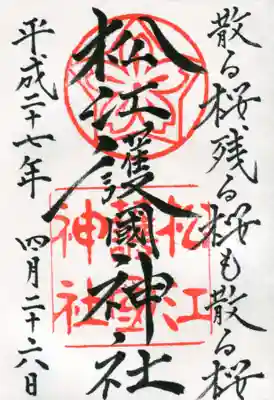 散る桜、残る桜も散る桜
松江護國神社
松江
護國
神社
平成二十七年 四月二十六日